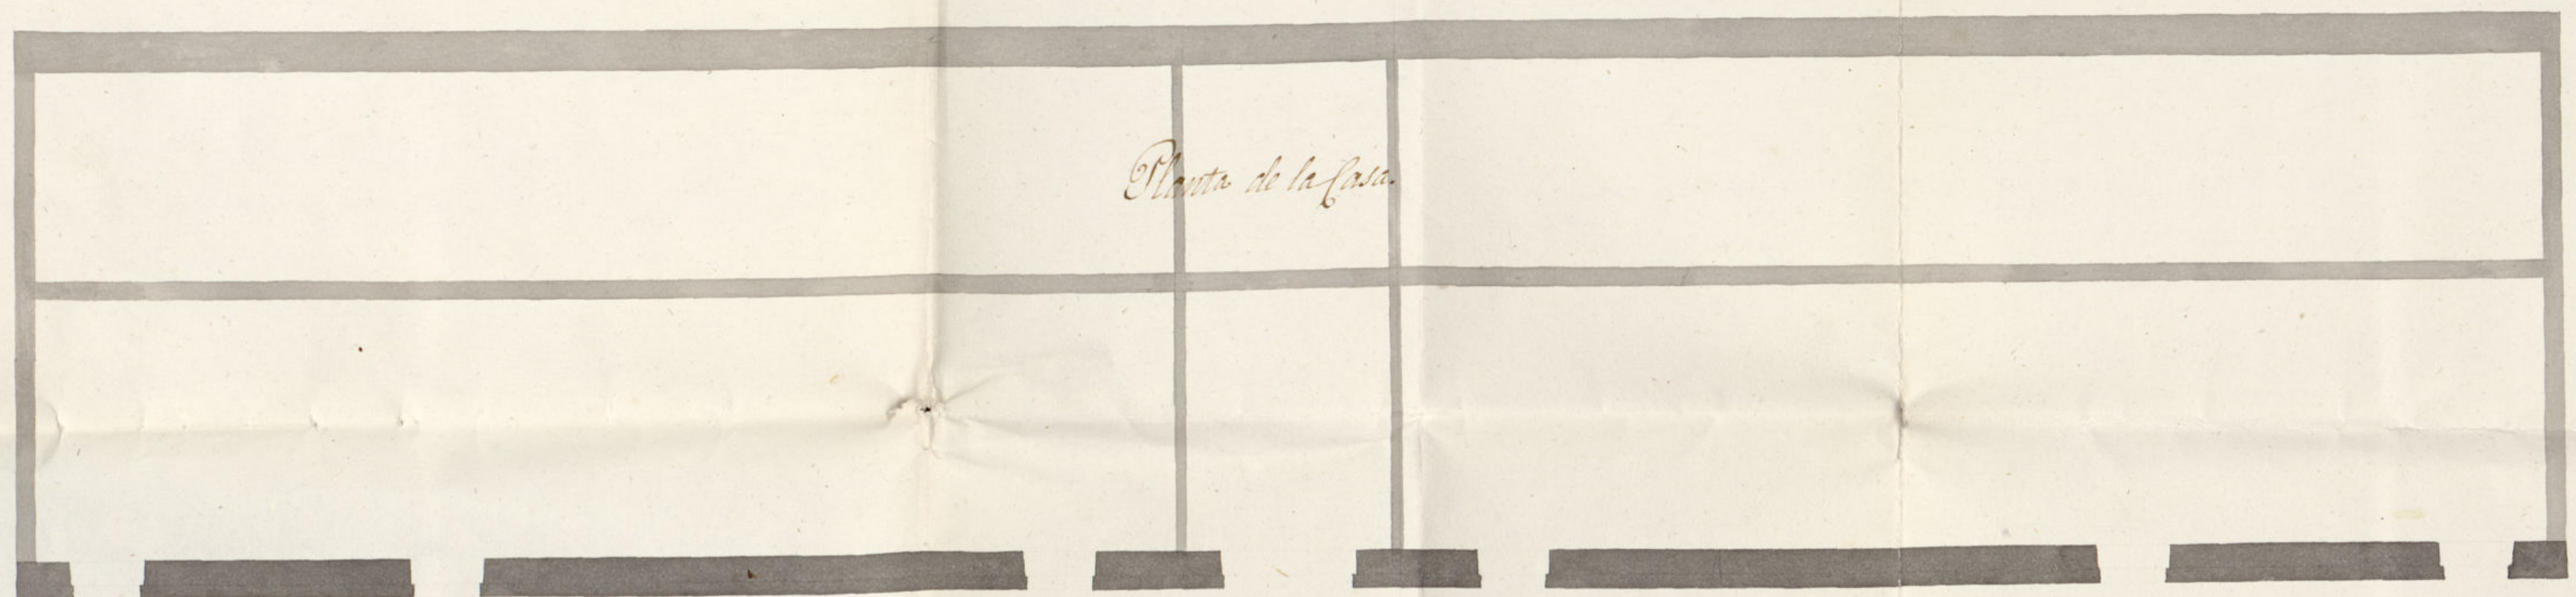 Planta de la Casa.